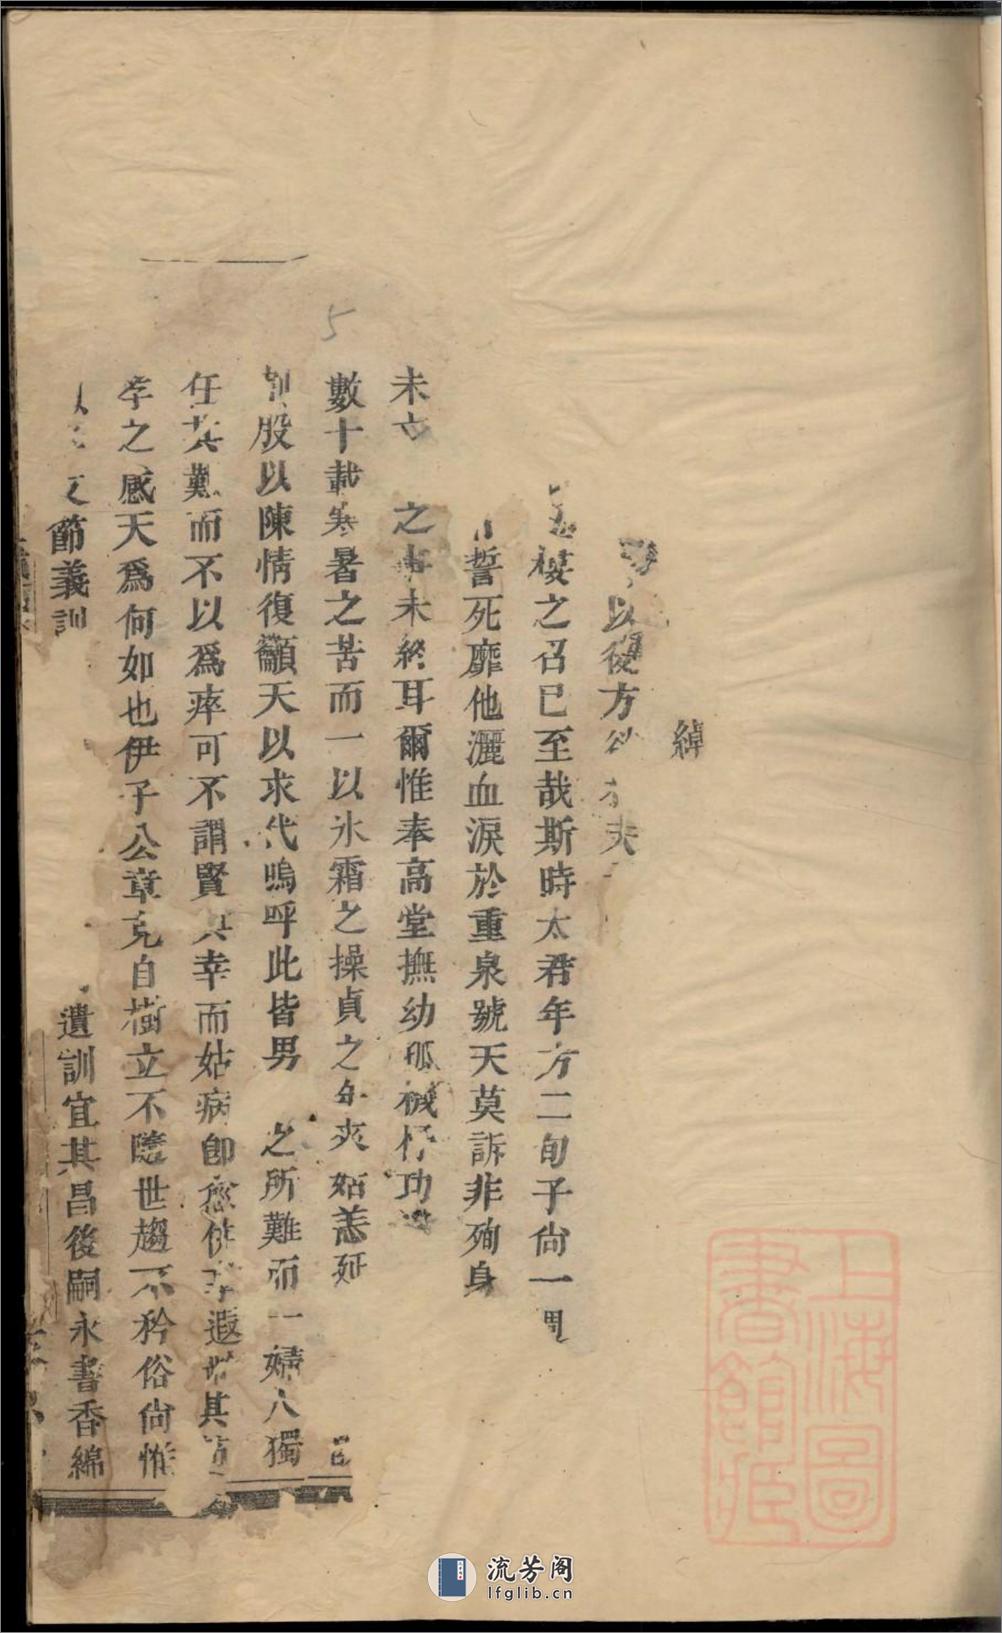 綽
以後方公 夫
樓之召已至哉斯時太君年方二旬子尙一周
誓死靡他灑血淚於重泉號天莫訴非殉身
未 之事未終耳爾惟奉高堂撫幼孤機杼功
數十載寒暑之苦而一以氷霜之操貞之年爽姑恙延
刲股以陳情復籲天以求代嗚呼此皆男 之所難而一婦人獨
任其難而不以爲瘁可不謂賢 幸而姑病卽愈 孝遐 其
孝之感天爲何如也伊子公章克自樹立不隨世趨不矜俗尙惟
節義訓 遺訓宜其昌後嗣永書香綿
5
上海圖書館藏
流芳阁
lfglib.cn